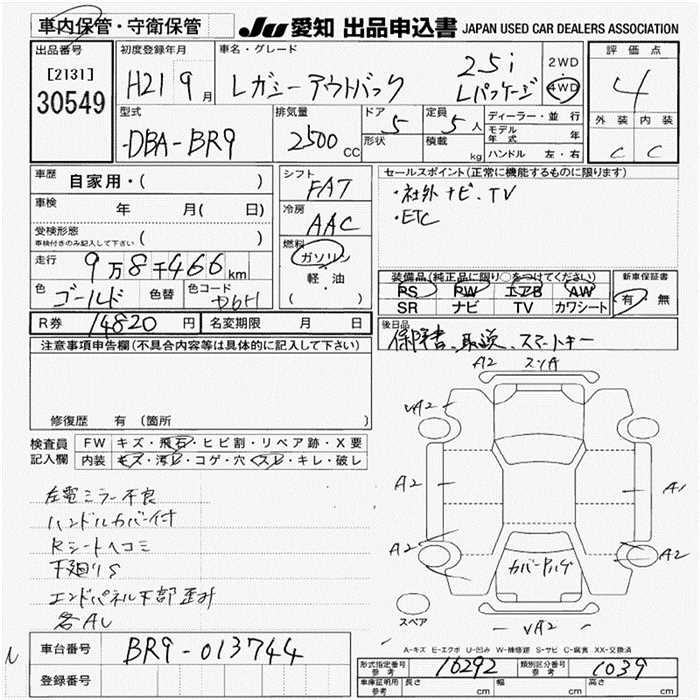 車内保管・守衛保管 JU 愛知 出品申込書 JAPAN USED CAR DEALERS ASSOCIATION
出品番号 初度登録年月 車名・グレード 評価点
[2131] H21 9月 レガシーアウトバック 2.5i 2WD 4
30549 Lパッケージ 4WD
外装 内装
型式 排気量 ドア 定員 ディーラー・並行
DBA-BR9 2500CC 5 5人 モデル年式 年
形状 積載 kg ハンドル 左・右 C C
車歴 自家用・( ) シフト FAT セールスポイント(正常に機能するものに限ります)
車検 年 月( 日) 冷房 AAC ・社外ナビ、TV
受検形態 ・ETC
車検付きのみ記入して下さい ( ) 燃料
走行 9万8千466km ガソリン
軽・油
( )
装備品(純正品に限り○をつけてください) 新車保証書
色 ゴールド 色替 色コード D6H PS PW エアB AW 有・無
SR ナビ TV カワシート
R券 14820円 名変期限 月 日 後日品
保障書、取説、スマートキー
注意事項申告欄(不具合内容等は具体的に記入して下さい)
修復歴 有 (箇所 )
検査員 FW キズ・飛石・ヒビ割・リペア跡・X要
記入欄 内装 キズ・汚レ・コゲ・穴・スレ・キレ・破レ
左電ミラー不良
ハンドルカバー付
Rシートヘコミ
下廻りS
エンドパネル下部歪み
各AU
A2 スリA
UA2
A2 A1
A2 A2
カバー
スペア UA2
A-キズ E-エクボ U-凹み W-補修跡 S-サビ C-腐食 XX-交換済
車台番号 BR9-013744
登録番号
形式指定番号 参考 16292 類別区分番号 参考 1039
車庫証明用 参考 長さ cm 幅 cm 高さ cm